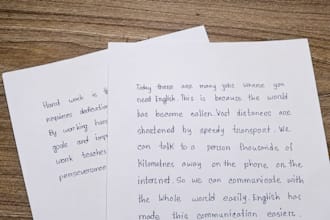 Hand work is t
requires dedication
By working har
goals and impr
work teaches
perseverance
Today there are many jobs where you
need English. This is because the world
has become smaller. Vast distances are
shortened by speedy transport. We
can talk to a person thousands of
Kilometres away on the phone or the
internet. So we can communicate with
the whole world easily. English has
made this communication easier.